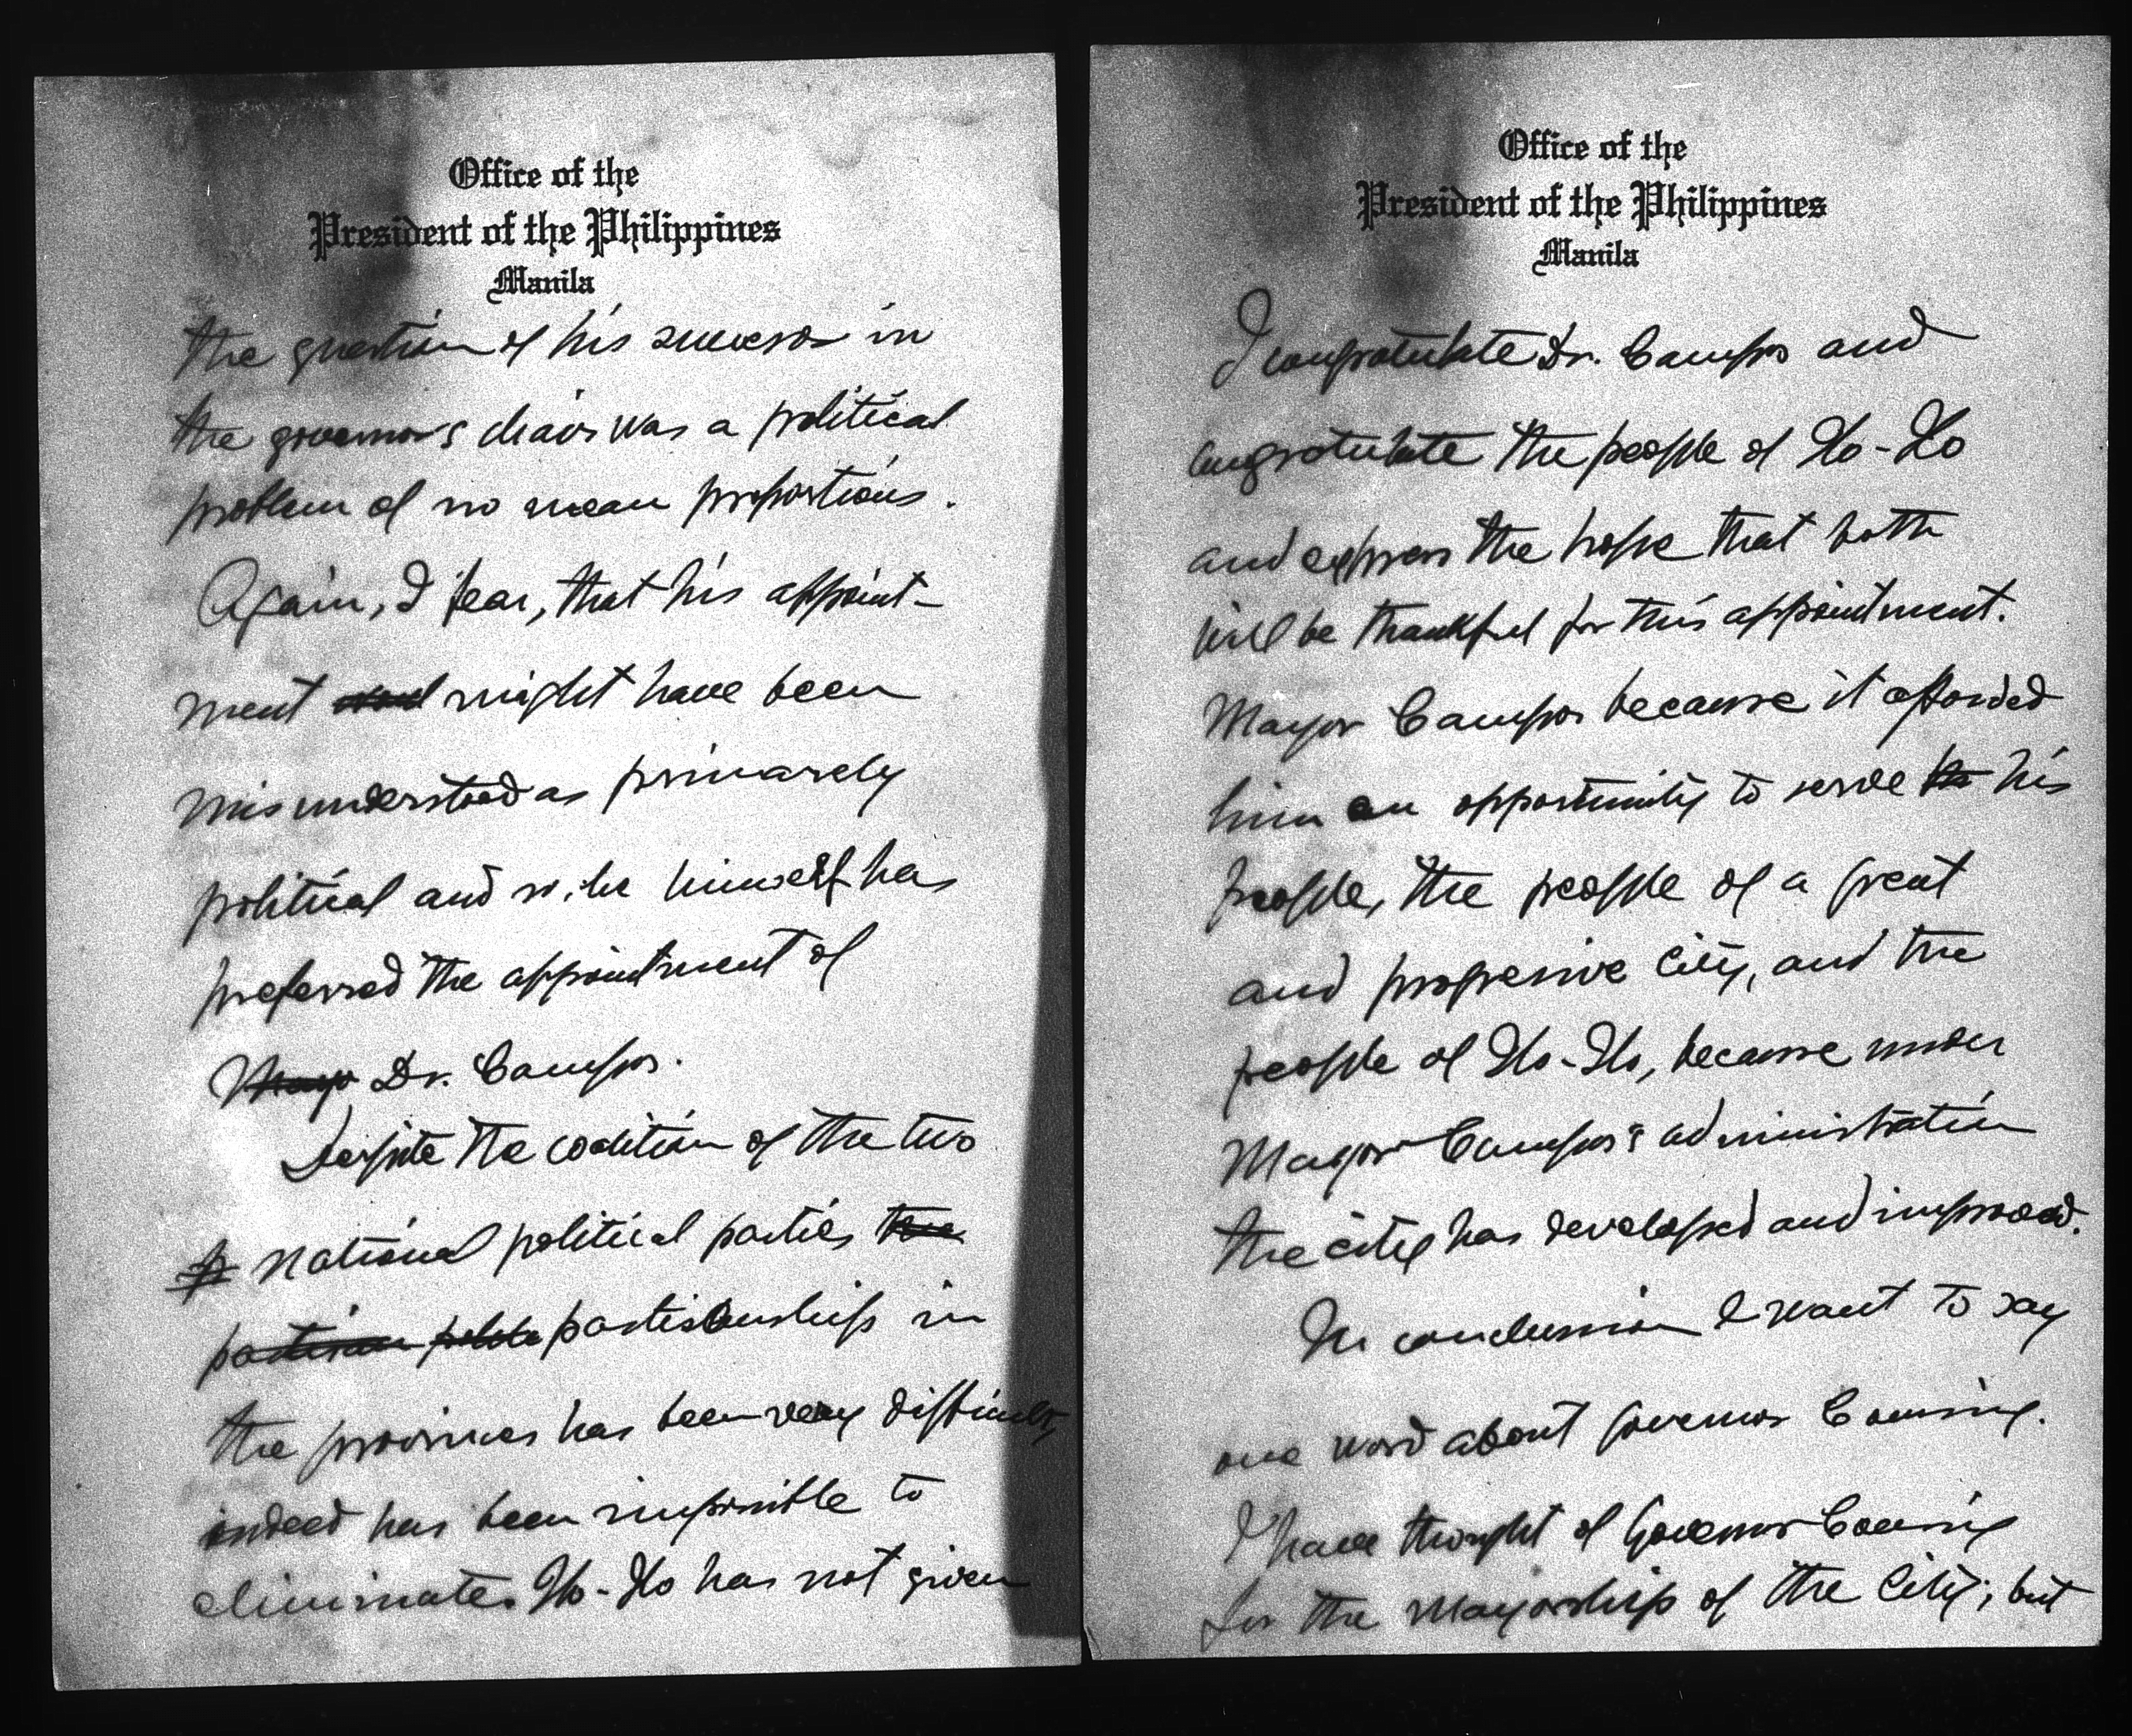 Office of the
President of the Philippines
Manila
the question of his successor in
the governor's chair was a political
problem of no mean proportions.
Again, I fear, that his appoint-
ment might have been
misunderstood as primarely
political and so, he himself has
preferred the appointment of
Mayor Dr. Campos.
Despite the coalition of the two
national political parties the
partisan partisanship in
the provinces has been very difficult,
indeed has been impossible to
eliminate. Ilo-Ilo has not given
Office of the
President of the Philippines
Manila
I congratulate Dr. Campos and
congratulate the people of Ilo-Ilo
and express the hope that both
will be thankful for this appointment.
Mayor Campos because it afforded
him an opportunity to serve his
people, the people of a great
and progressive City, and the
people of Ilo-Ilo, because under
Mayor Campos's administration
the city has developed and improved.
In conclusion I want to say
one word about Governor Confesor.
I have thought of Governor Confesor
for the Mayorship of the City; but